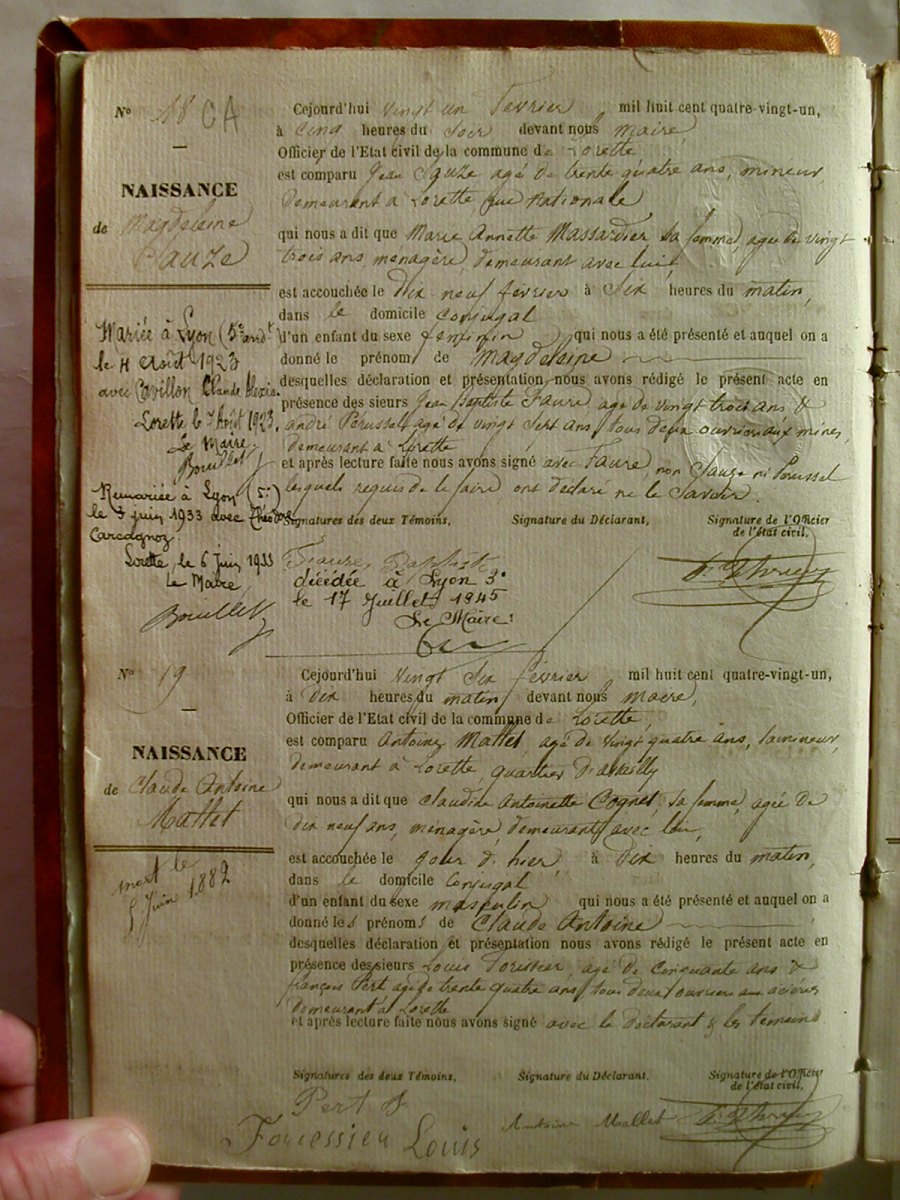 N° 18 CA
NAISSANCE
de Magdeleine
Sauze
Mariée à Lyon (5e arrdt)
le 4 Août 1923
avec Claude Alexis.
Lorette le 7 Août 1923.
Le Maire.
Bouillet
Remariée à Lyon (5e)
le 3 juin 1933 avec Théodore
Carcagnoz.
Lorette, le 6 Juin 1933
Le Maire,
Bouillet
Cejourd'hui vingt un Fevrier, mil huit cent quatre-vingt-un,
à Cinq heures du Soir devant nous maire,
Officier de l'Etat civil de la commune de Lorette
est comparu Jean Sauze agé de trente quatre ans, mineur,
demeurant à Lorette, rue Nationale
qui nous a dit que Marie Annette Massardier sa femme, agée de vingt
trois ans, ménagère, demeurant avec lui,
est accouchée le dix neuf fevrier à Six heures du matin,
dans le domicile conjugal
d'un enfant du sexe feminin qui nous a été présenté et auquel on a
donné le prénom de Magdeleine
desquelles déclaration et présentation nous avons rédigé le présent acte en
présence des sieurs Jean Baptiste Faure, agé de vingt trois ans &
andré Péroussel agé de vingt sept ans, tous deux ouvriers aux mines,
demeurant à Lorette
et après lecture faite nous avons signé avec Faure, non Sauze ni
lesquels requis de le faire ont déclaré ne le Savoir.
Signatures des deux Témoins, Signature du Déclarant, Signature de l'Officier
de l'état civil.
Faure Baptiste
décédée à Lyon 3e
le 17 Juillet 1945
Le Maire:
N° 19
NAISSANCE
de Claude Antoine
Mallet
mort le
5 Juin 1882
Cejourd'hui vingt Six fevrier mil huit cent quatre-vingt-un,
à dix heures du matin, devant nous maire,
Officier de l'Etat civil de la commune de Lorette,
est comparu Antoine Mallet, agé de vingt quatre ans, lamineur,
demeurant à Lorette, quartier d'assailly
qui nous a dit que Claudine Antoinette Cognet, sa femme, agée de
dix neuf ans, ménagère, demeurant avec lui,
est accouchée le jour d'hier, à dix heures du matin,
dans le domicile conjugal
d'un enfant du sexe masculin qui nous a été présenté et auquel on a
donné les prénoms de Claude Antoine
desquelles déclaration et présentation nous avons rédigé le présent acte en
présence des sieurs Louis agé de Cinquante ans &
françois Pert agé de trente quatre ans, tous deux ouvriers aux acieries
demeurant à Lorette
et après lecture faite nous avons signé avec le déclarant & les temoins.
Signatures des deux Témoins, Signature du Déclarant, Signature de l'Officier
de l'état civil,
Pert f.
Antoine Mallet
Forcessieu Louis